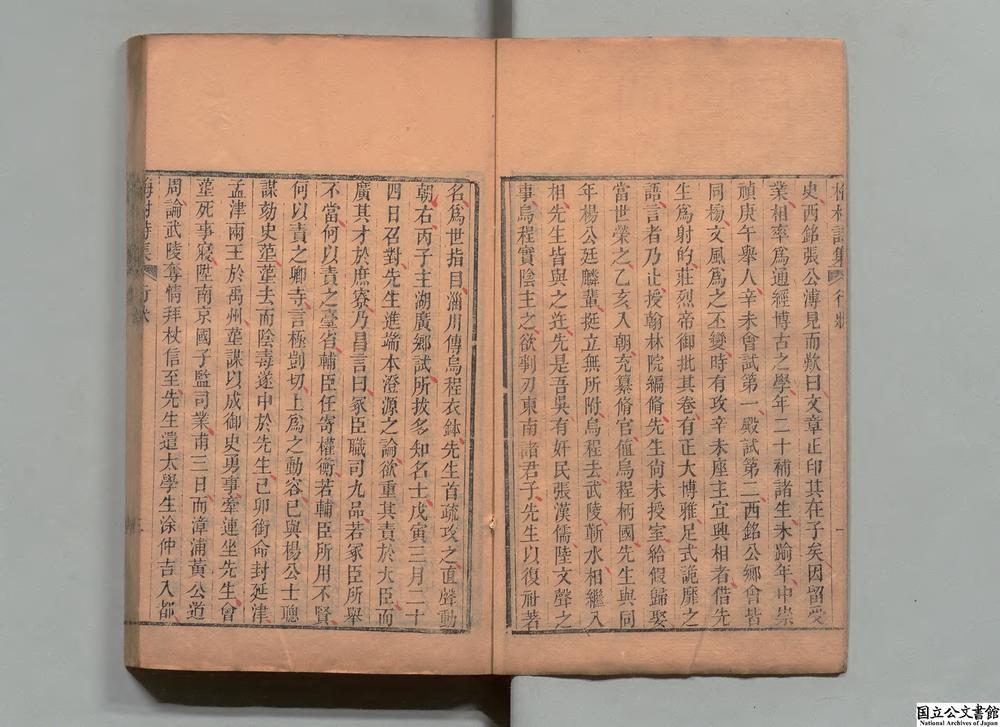 史西銘張公溥見而歎曰文章正印其在子矣因留受
業相率為通經博古之學年二十補諸生未踰年中崇
禎庚午舉人辛未會試第一殿試第二西銘公鄉會皆
同榜文風為之丕變時有攻辛未座主宜興相者借先
生為射的莊烈帝御批其卷有正大博雅足式詭靡之
語言者乃止授翰林院編脩先生尚未授室給假歸娶
當世榮之乙亥入朝充纂脩官值烏程柄國先生與同
年楊公廷麟輩挺立無所附烏程去武陵蘄水相繼入
相先生皆與之迕先是吾吳有奸民張漢儒陸文聲之
事烏程實陰主之欲剚刃東南諸君子先生以復社著
名為世指目淄川傳烏程衣鉢先生首疏攻之直聲動
朝右丙子主湖廣鄉試所拔多知名士戊寅三月二十
四日召對先生進端本澄源之論欲重其責於大臣而
廣其才於庶寮乃昌言曰冢臣職司九品若冢臣所舉
不當何以責之臺省輔臣任寄權衡若輔臣所用不賢
何以責之卿寺言極剴切上為之動容已與楊公士聰
謀劾史𡎊𡎊去而陰毒遂中於先生己卯銜命封延津
孟津兩王於禹州𡎊謀以成御史勇事牽連坐先生會
𡎊死事寢陞南京國子監司業甫三日而漳浦黃公道
周論武陵奪情拜杖信至先生遣太學生涂仲吉入都
行狀